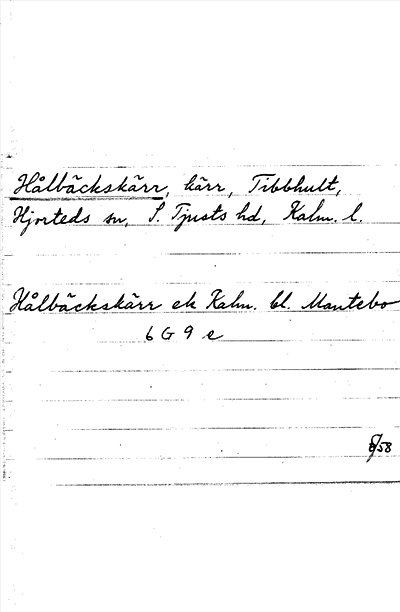 Hålbäckskärr, kärr, Tibbhult,
Hjorteds sn, S. Tjusts hd, Kalm. l.
Hålbäckskärr ek Kalm. bl. Mantebo
6 G 9 e
58